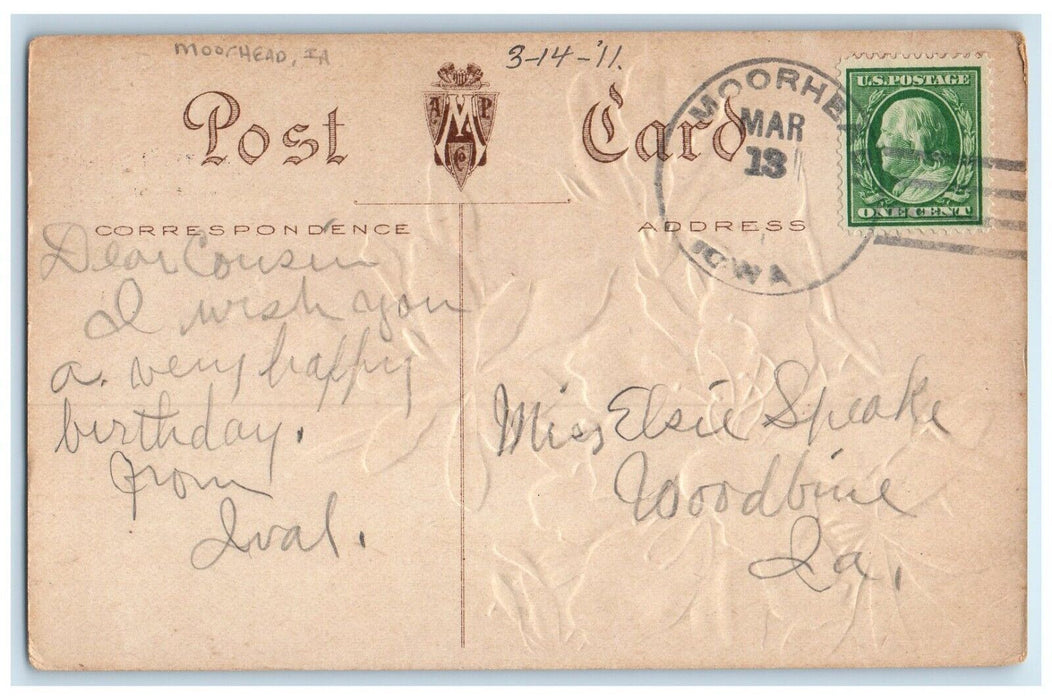 MOORHEAD, IA
3-14-'11.
Post Card
A M P Co
CORRESPONDENCE
ADDRESS
MOORHEA
MAR
13
IOWA
U.S. POSTAGE
ONE CENT
Dear Cousin
I wish you
a. very happy
birthday.
from
Ival.
Miss Elsie Speake
Woodbine
Ia.